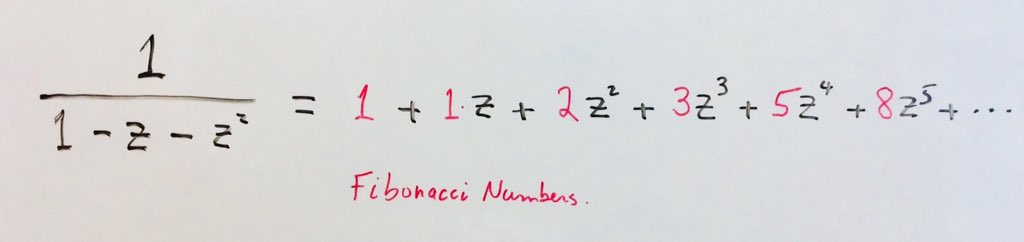 1
1 - z - z² = 1 + 1·z + 2z² + 3z³ + 5z⁴ + 8z⁵ + ...
Fibonacci Numbers.